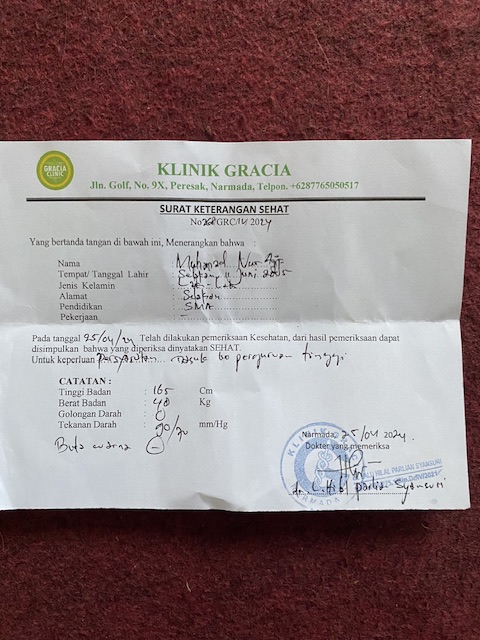 GRACIA
CLINIC
KLINIK GRACIA
Jln. Golf, No. 9X, Peresak, Narmada, Telpon. +6287765050517
SURAT KETERANGAN SEHAT
No GRC/ 2024
Yang bertanda tangan di bawah ini, Menerangkan bahwa :
Nama : Muhamad Nur
Tempat/ Tanggal Lahir : 11 Juni 2005
Jenis Kelamin : Laki - Laki
Alamat :
Pendidikan : SMA
Pekerjaan : -
Pada tanggal 25/04/24 Telah dilakukan pemeriksaan Kesehatan, dari hasil pemeriksaan dapat
disimpulkan bahwa yang diperiksa dinyatakan SEHAT.
Untuk keperluan persyaratan masuk ke perguruan tinggi
CATATAN :
Tinggi Badan : 165 Cm
Berat Badan : 48 Kg
Golongan Darah : O
Tekanan Darah : 90/70 mm/Hg
Buta warna -
Narmada, 25/04 2024.
Dokter yang memeriksa
LALU HILAL PARLIAN SYANSURI
dr. L. Hilal Parlian Syansuri